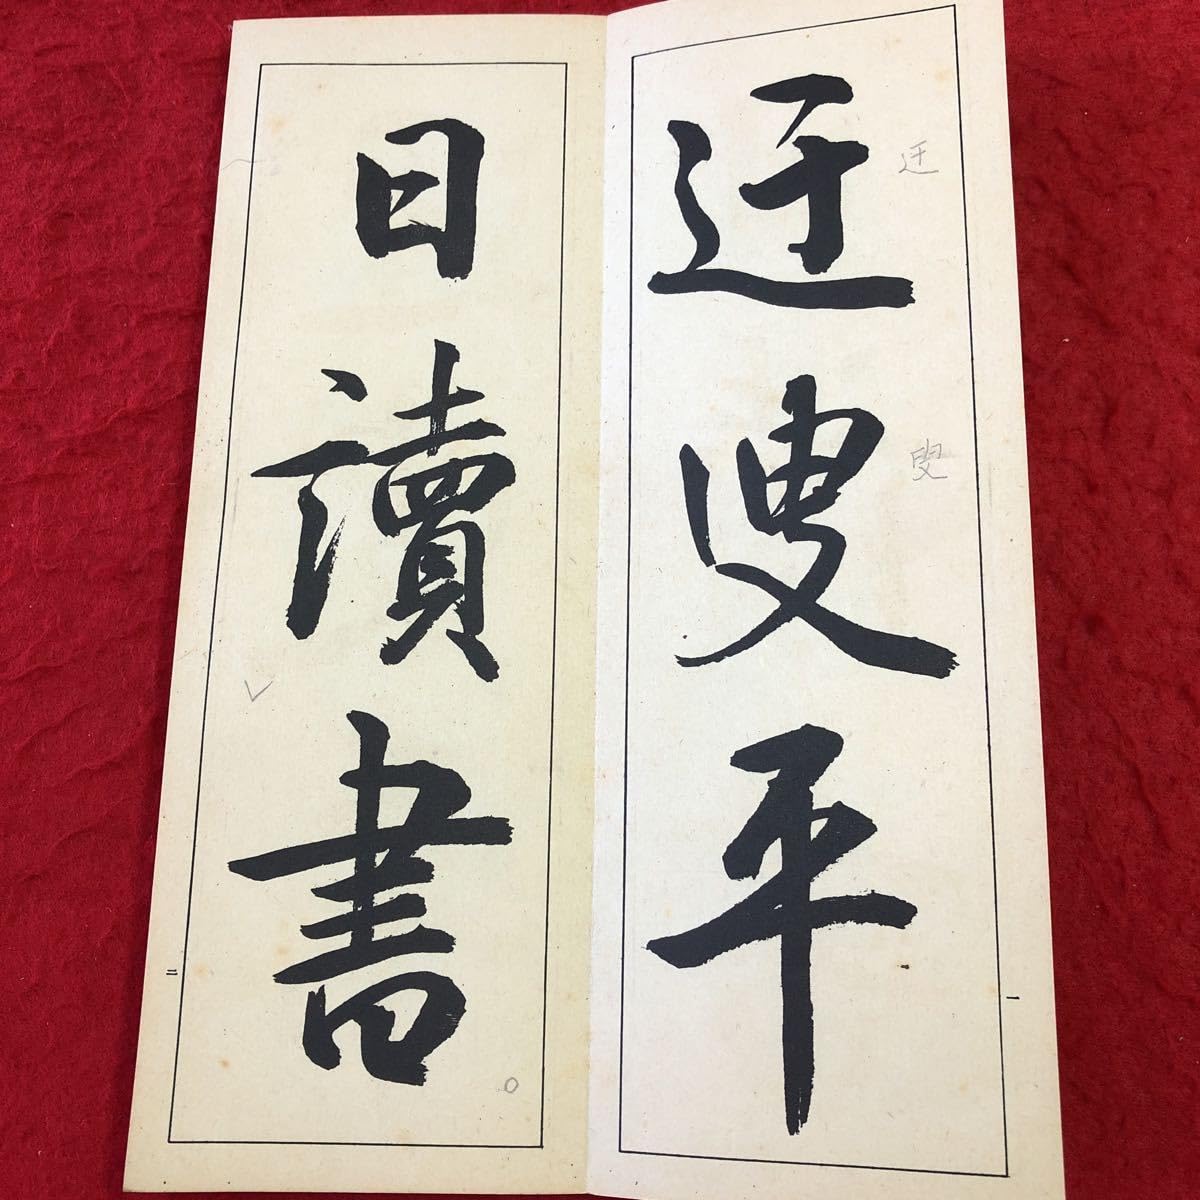 迂叟平
日讀書
迂
叟
一
二